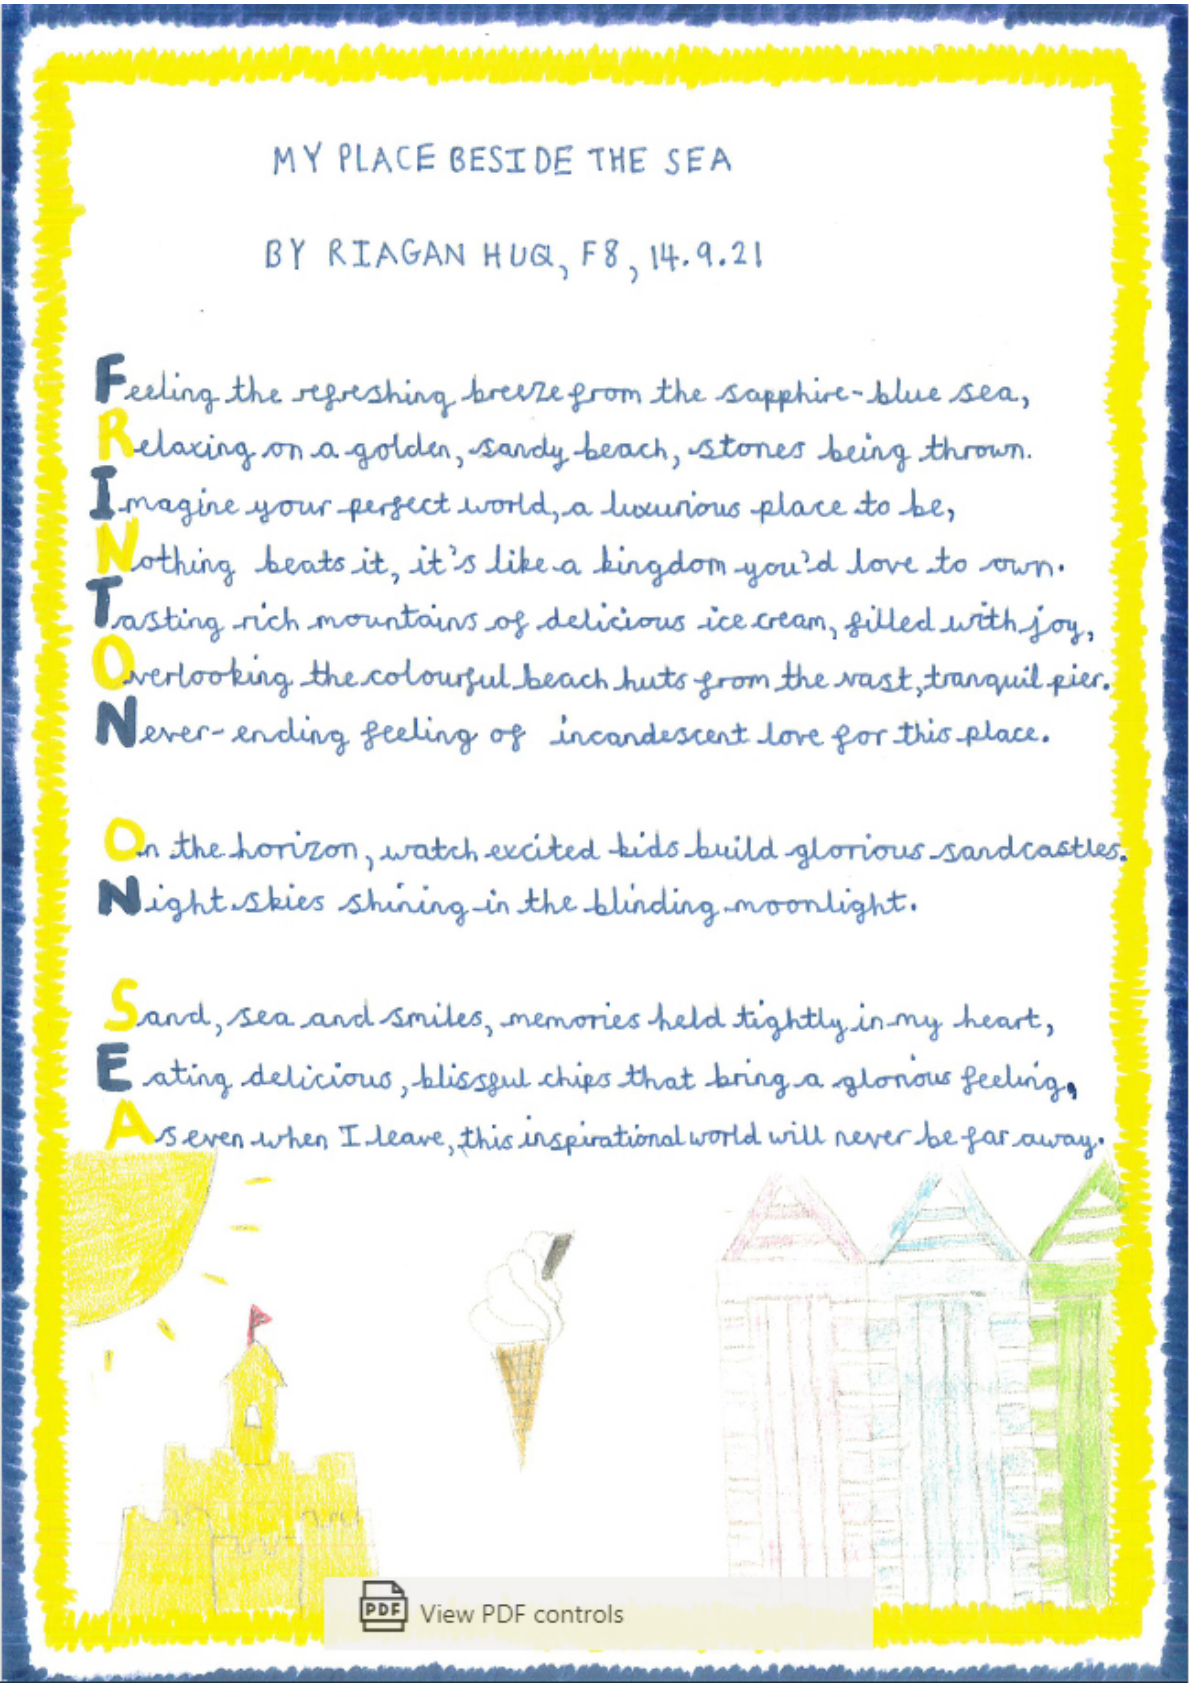 MY PLACE BESIDE THE SEA
BY RIAGAN HUQ, F8, 14.9.21
Feeling the refreshing breeze from the sapphire-blue sea,
Relaxing on a golden, sandy beach, stones being thrown.
Imagine your perfect world, a luxurious place to be,
Nothing beats it, it's like a kingdom you'd love to own.
Tasting rich mountains of delicious ice cream, filled with joy,
Overlooking the colourful beach huts from the vast, tranquil pier.
Never-ending feeling of incandescent love for this place.
On the horizon, watch excited kids build glorious sandcastles.
Night skies shining in the blinding moonlight.
Sand, sea and smiles, memories held tightly in my heart,
Eating delicious, blissful chips that bring a glorious feeling,
As even when I leave, this inspirational world will never be far away.
PDF View PDF controls